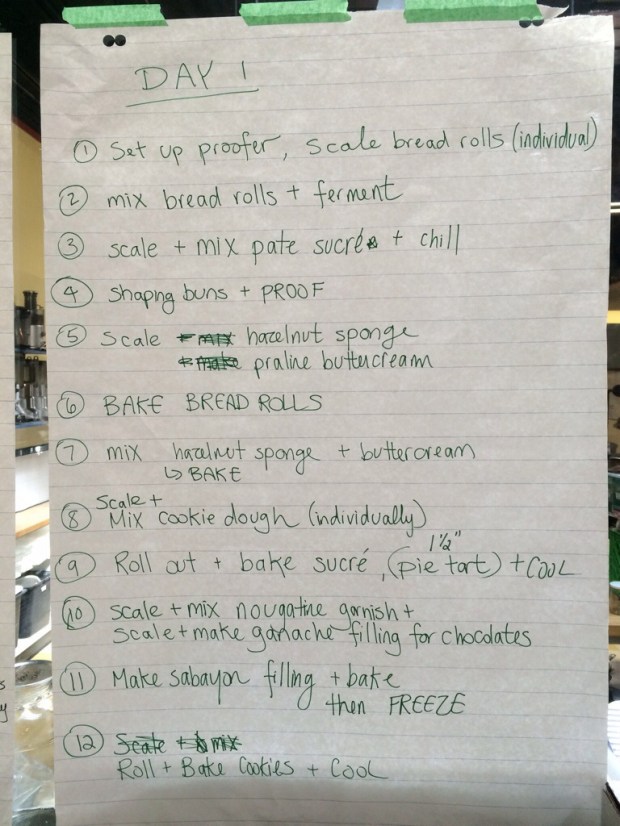 DAY 1
① Set up proofer, scale bread rolls (individual)
② mix bread rolls + ferment
③ scale + mix pate sucré + chill
④ shapng buns + PROOF
⑤ Scale hazelnut sponge
praline buttercream
⑥ BAKE BREAD ROLLS
⑦ mix hazelnut sponge + buttercream
↳ BAKE
Scale +
⑧ Mix cookie dough (individually)
1½"
⑨ Roll out + bake sucré, (pie tart) + COOL
⑩ scale + mix nougatine garnish +
scale + make ganache filling for chocolates
⑪ Make sabayon filling + bake
then FREEZE
⑫ Scale + mix
Roll + Bake Cookies + COOL